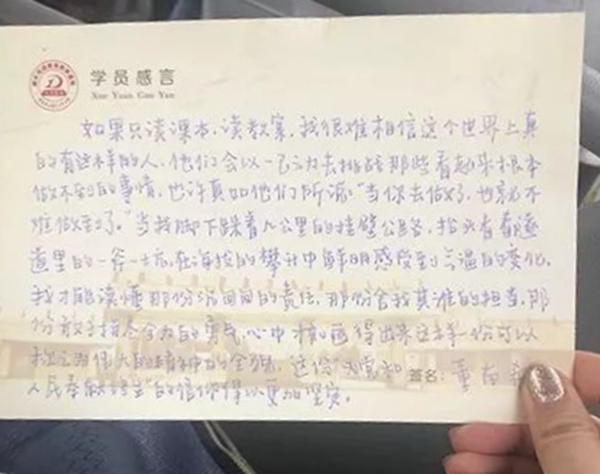 学员感言
Xue Yuan Gan Yan
如果只读课本、读教案,我很难相信这个世界上真
的有这样的人,他们会以一己之力去挑战那些看起来根本
做不到的事情,也许真如他们所说:"当你去做了,也就不
难做到了。"当我脚下踩着几公里的挂壁公路,抬头看着隧
道里的一斧一凿,在海拔的攀升中鲜明感受到气温的变化,
我才能读懂那份沉甸甸的责任,那份舍我其谁的担当,那
份敢于的勇气,心中才得出来这样一份可以
称之为伟大的精神的全貌。这份"为党和
人民奉献"的信仰得以更加坚实。
签名:董